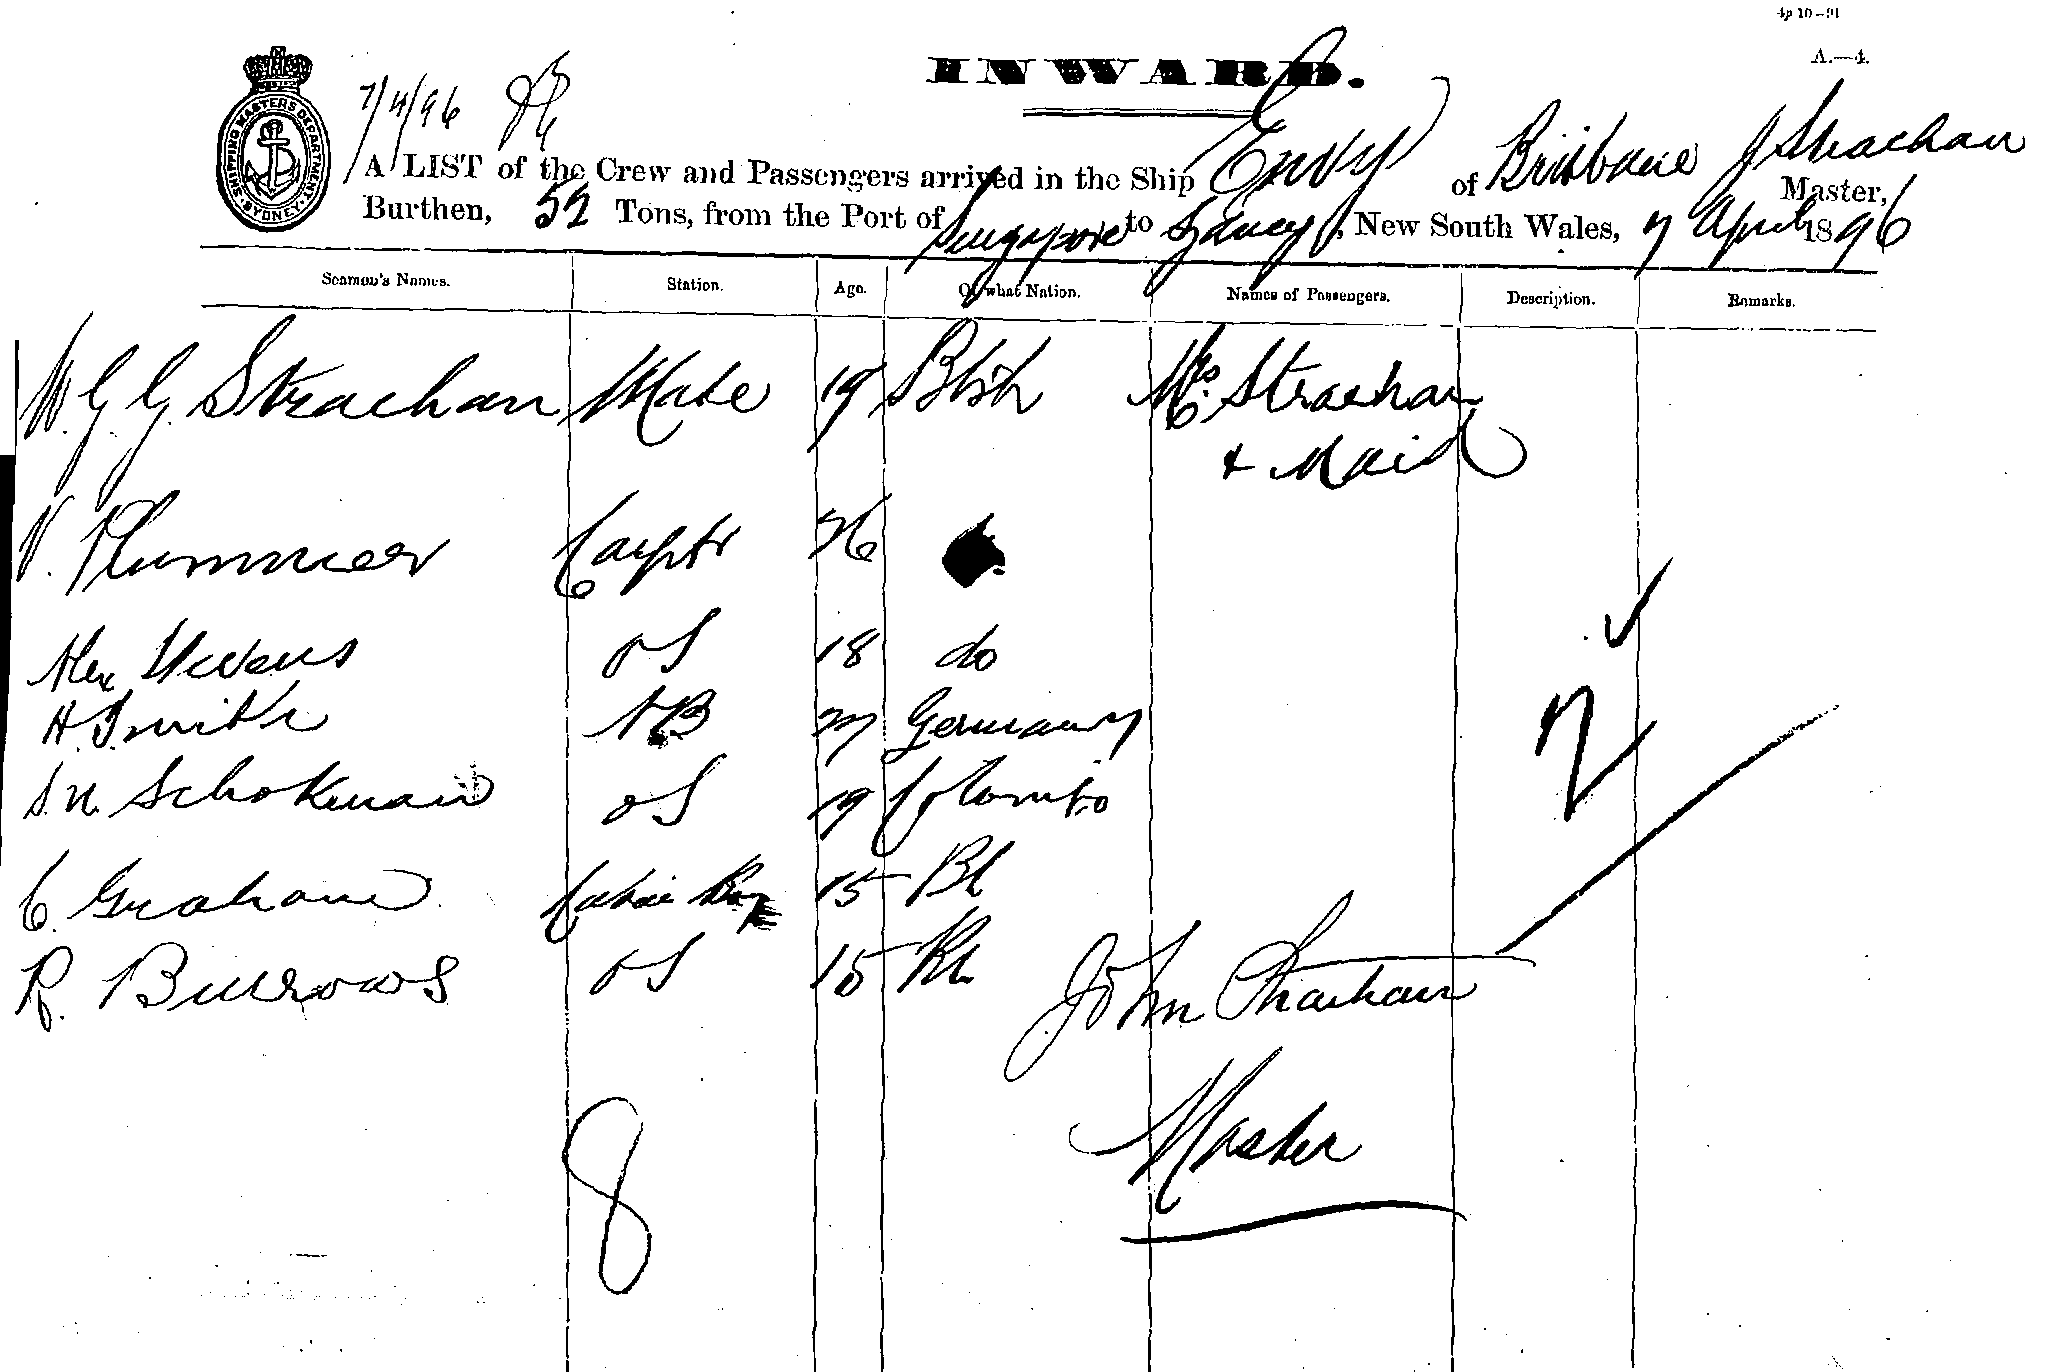 4p 10–91
INWARD.
A.—4.
SHIPPING MASTERS DEPARTMENT SYDNEY
7/4/96
A LIST of the Crew and Passengers arrived in the Ship Envy of Brisbane J Strachan Master,
Burthen, 52 Tons, from the Port of Singapore to Sydney, New South Wales, 7 April 1896
Seamen's Names. Station. Age. Of what Nation. Names of Passengers. Description. Remarks.
W. G. G. Strachan Mate 19 Btsh Mrs. Strachan
& Maid
V. Plummer Carptr 26
Alex Stevens OS 18 do
H. Smith AB 27 Germany
S. N. Schokman OS 19 Colombo
C. Graham Cabin Boy 15 Bt
2
R. Burrows OS 15 Bt
John Strachan
Master
8